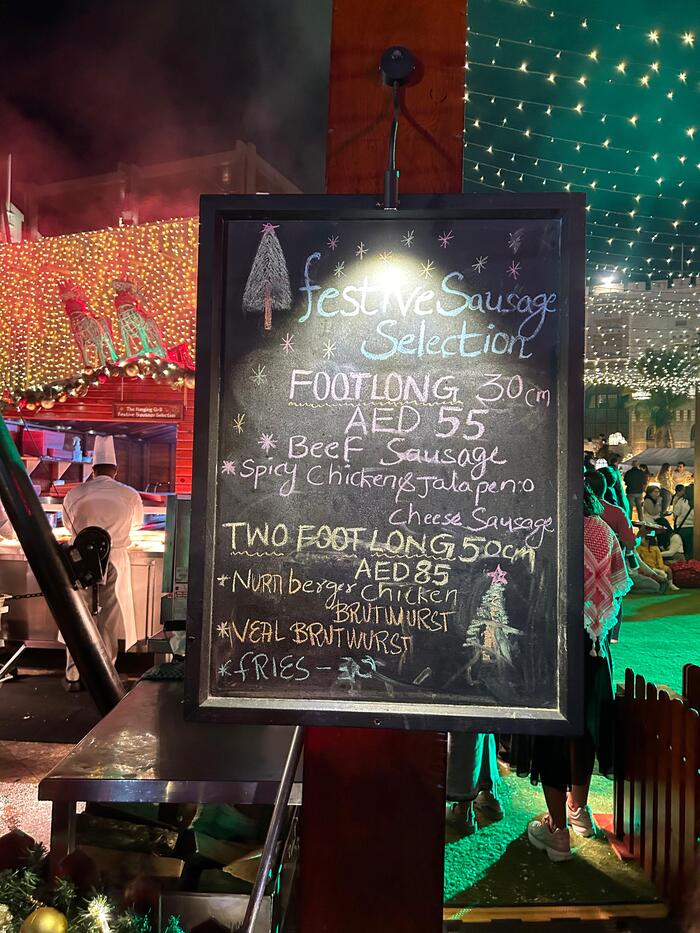 festive Sausage
Selection
FOOTLONG 30cm
AED 55
Beef Sausage
*Spicy Chicken & Jalapeno
Cheese Sausage
TWO FOOTLONG 50cm
AED 85
*Nurnberger Chicken
BRUTWURST
*VEAL BRUTWURST
*fRIES -
The Hanging Grill
Festive Sausage Selection